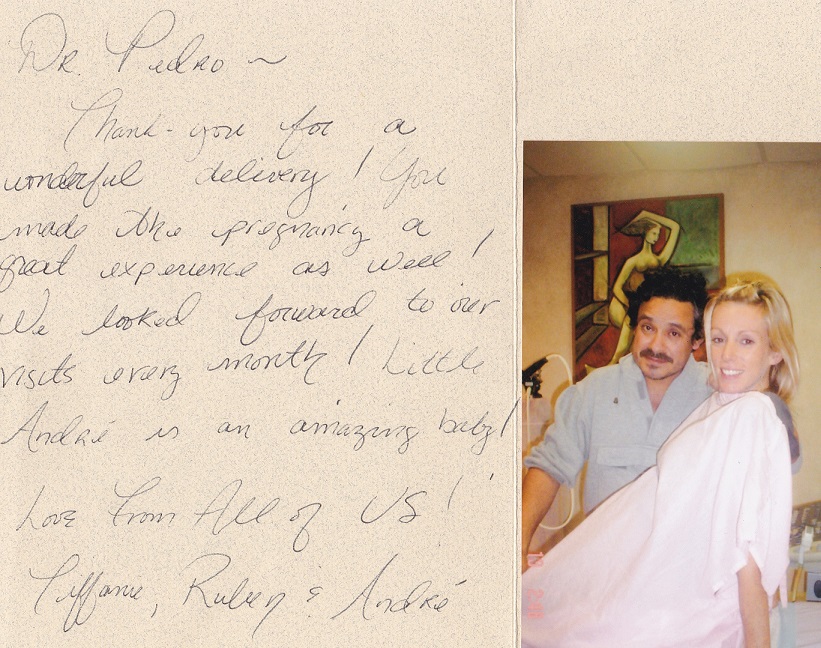 Dr. Pedro ~
Thank-you for a
wonderful delivery! You
made the pregnancy a
great experience as well!
We looked forward to our
visits every month! Little
André is an amazing baby!
Love From All of US!
Tiffanie, Ruben & André